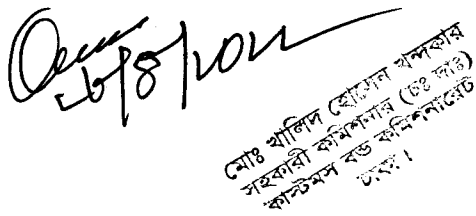 মোঃ খালিদ হোসেন খন্দকার
সহকারী কমিশনার (চঃ দাঃ)
কাস্টমস বন্ড কমিশনারেট
ঢাকা।